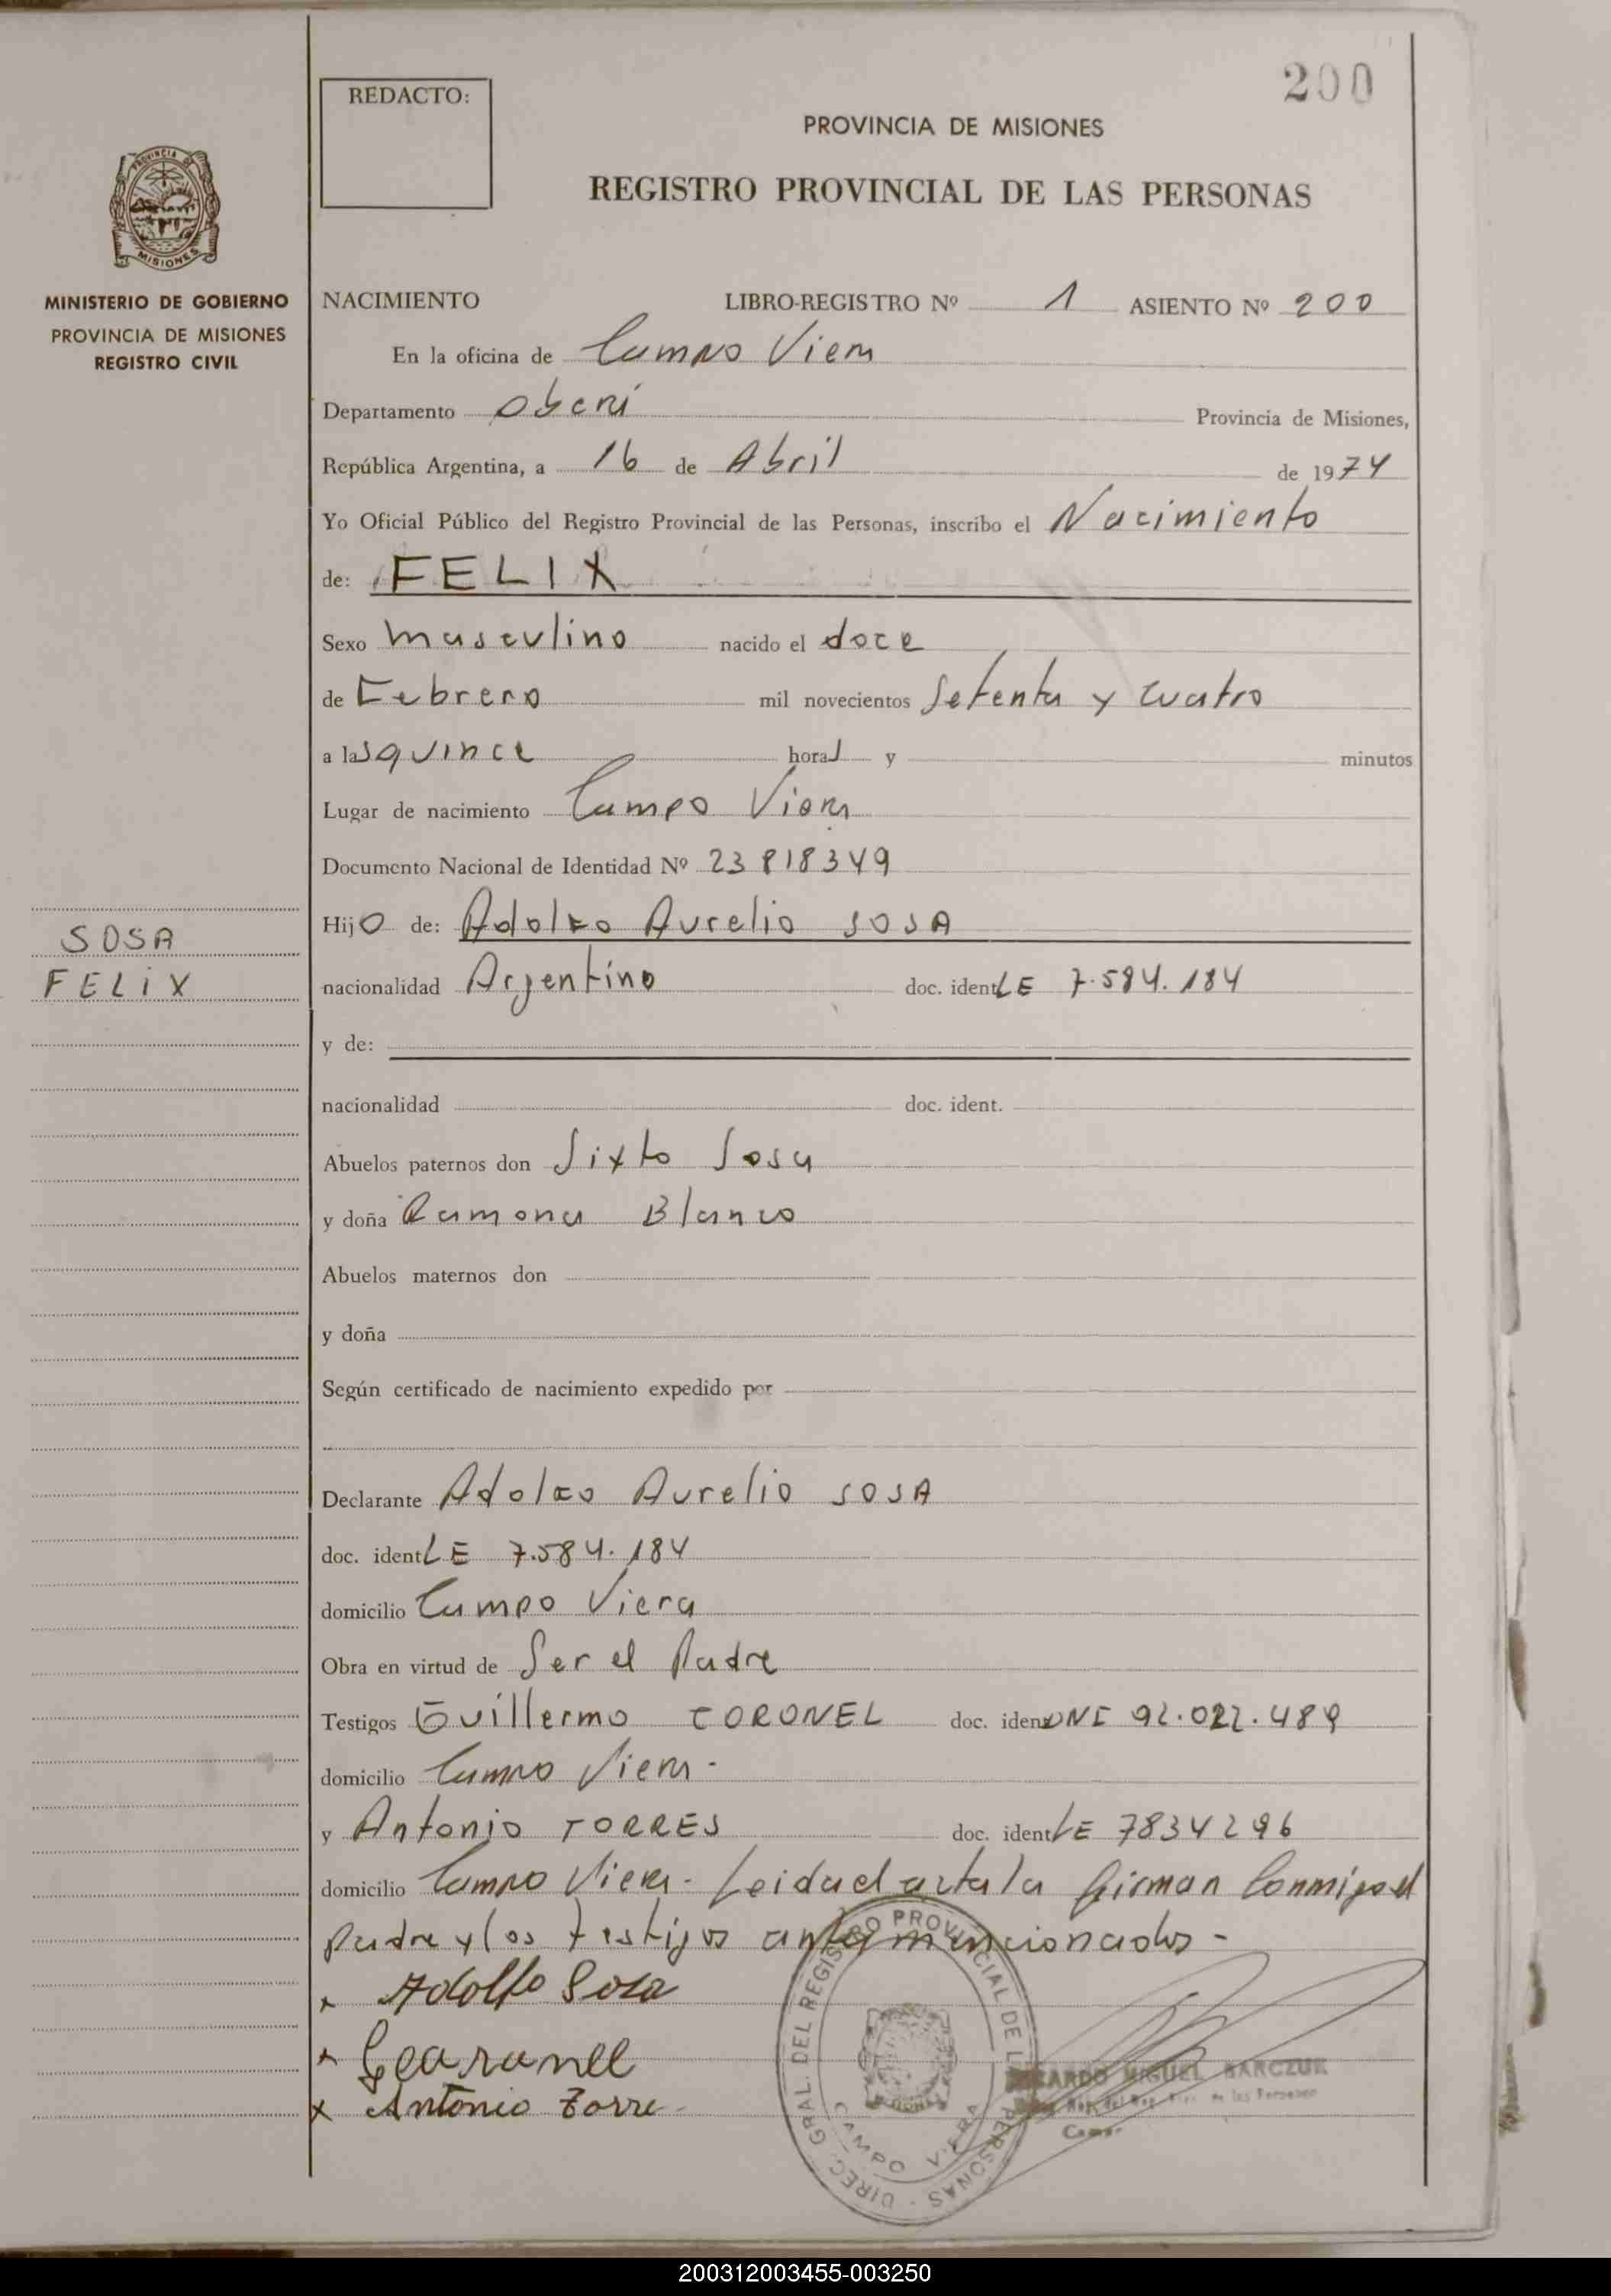 200
REDACTO:
PROVINCIA DE MISIONES
REGISTRO PROVINCIAL DE LAS PERSONAS
PROVINCIA DE
MISIONES
MINISTERIO DE GOBIERNO
PROVINCIA DE MISIONES
REGISTRO CIVIL
NACIMIENTO LIBRO-REGISTRO Nº 1 ASIENTO Nº 200
En la oficina de Campo Viera
Departamento Oberá Provincia de Misiones,
República Argentina, a 16 de Abril de 1974
Yo Oficial Público del Registro Provincial de las Personas, inscribo el Nacimiento
de: FELIX
Sexo masculino nacido el doce
de Febrero mil novecientos Setenta y cuatro
a las quince horas y minutos
Lugar de nacimiento Campo Viera
Documento Nacional de Identidad Nº 23818349
Hijo de: Adolfo Aurelio SOSA
SOSA
FELIX
nacionalidad Argentino doc. ident LE 7.584.184
y de:
nacionalidad doc. ident.
Abuelos paternos don Sixto Sosa
y doña Ramona Blanco
Abuelos maternos don
y doña
Según certificado de nacimiento expedido por
Declarante Adolfo Aurelio SOSA
doc. ident LE 7.584.184
domicilio Campo Viera
Obra en virtud de Ser el Padre
Testigos Guillermo CORONEL doc. iden DNI 92.022.489
domicilio Campo Viera -
y Antonio TORRES doc. ident LE 7834296
domicilio Campo Viera - Leida el acta la firman Conmigo el
Padre y los testigos antes mencionados -
x Adolfo Sosa
x
x Antonio Torre
DIREC. GRAL. DEL REGISTRO PROVINCIAL DE LAS PERSONAS
CAMPO VIERA
RICARDO MIGUEL BARCZUK
200312003455-003250